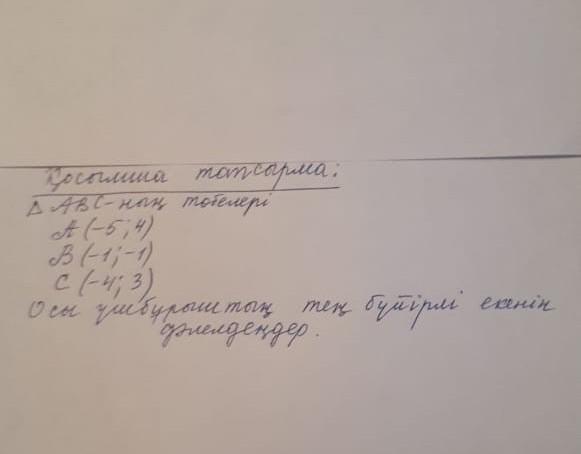 Қосымша тапсырма:
Δ ABC-ның төбелері
A (-5; 4)
B (-1; -1)
C (-4; 3)
Осы үшбұрыштың тең бүйірлі екенін
дәлелдеңдер.